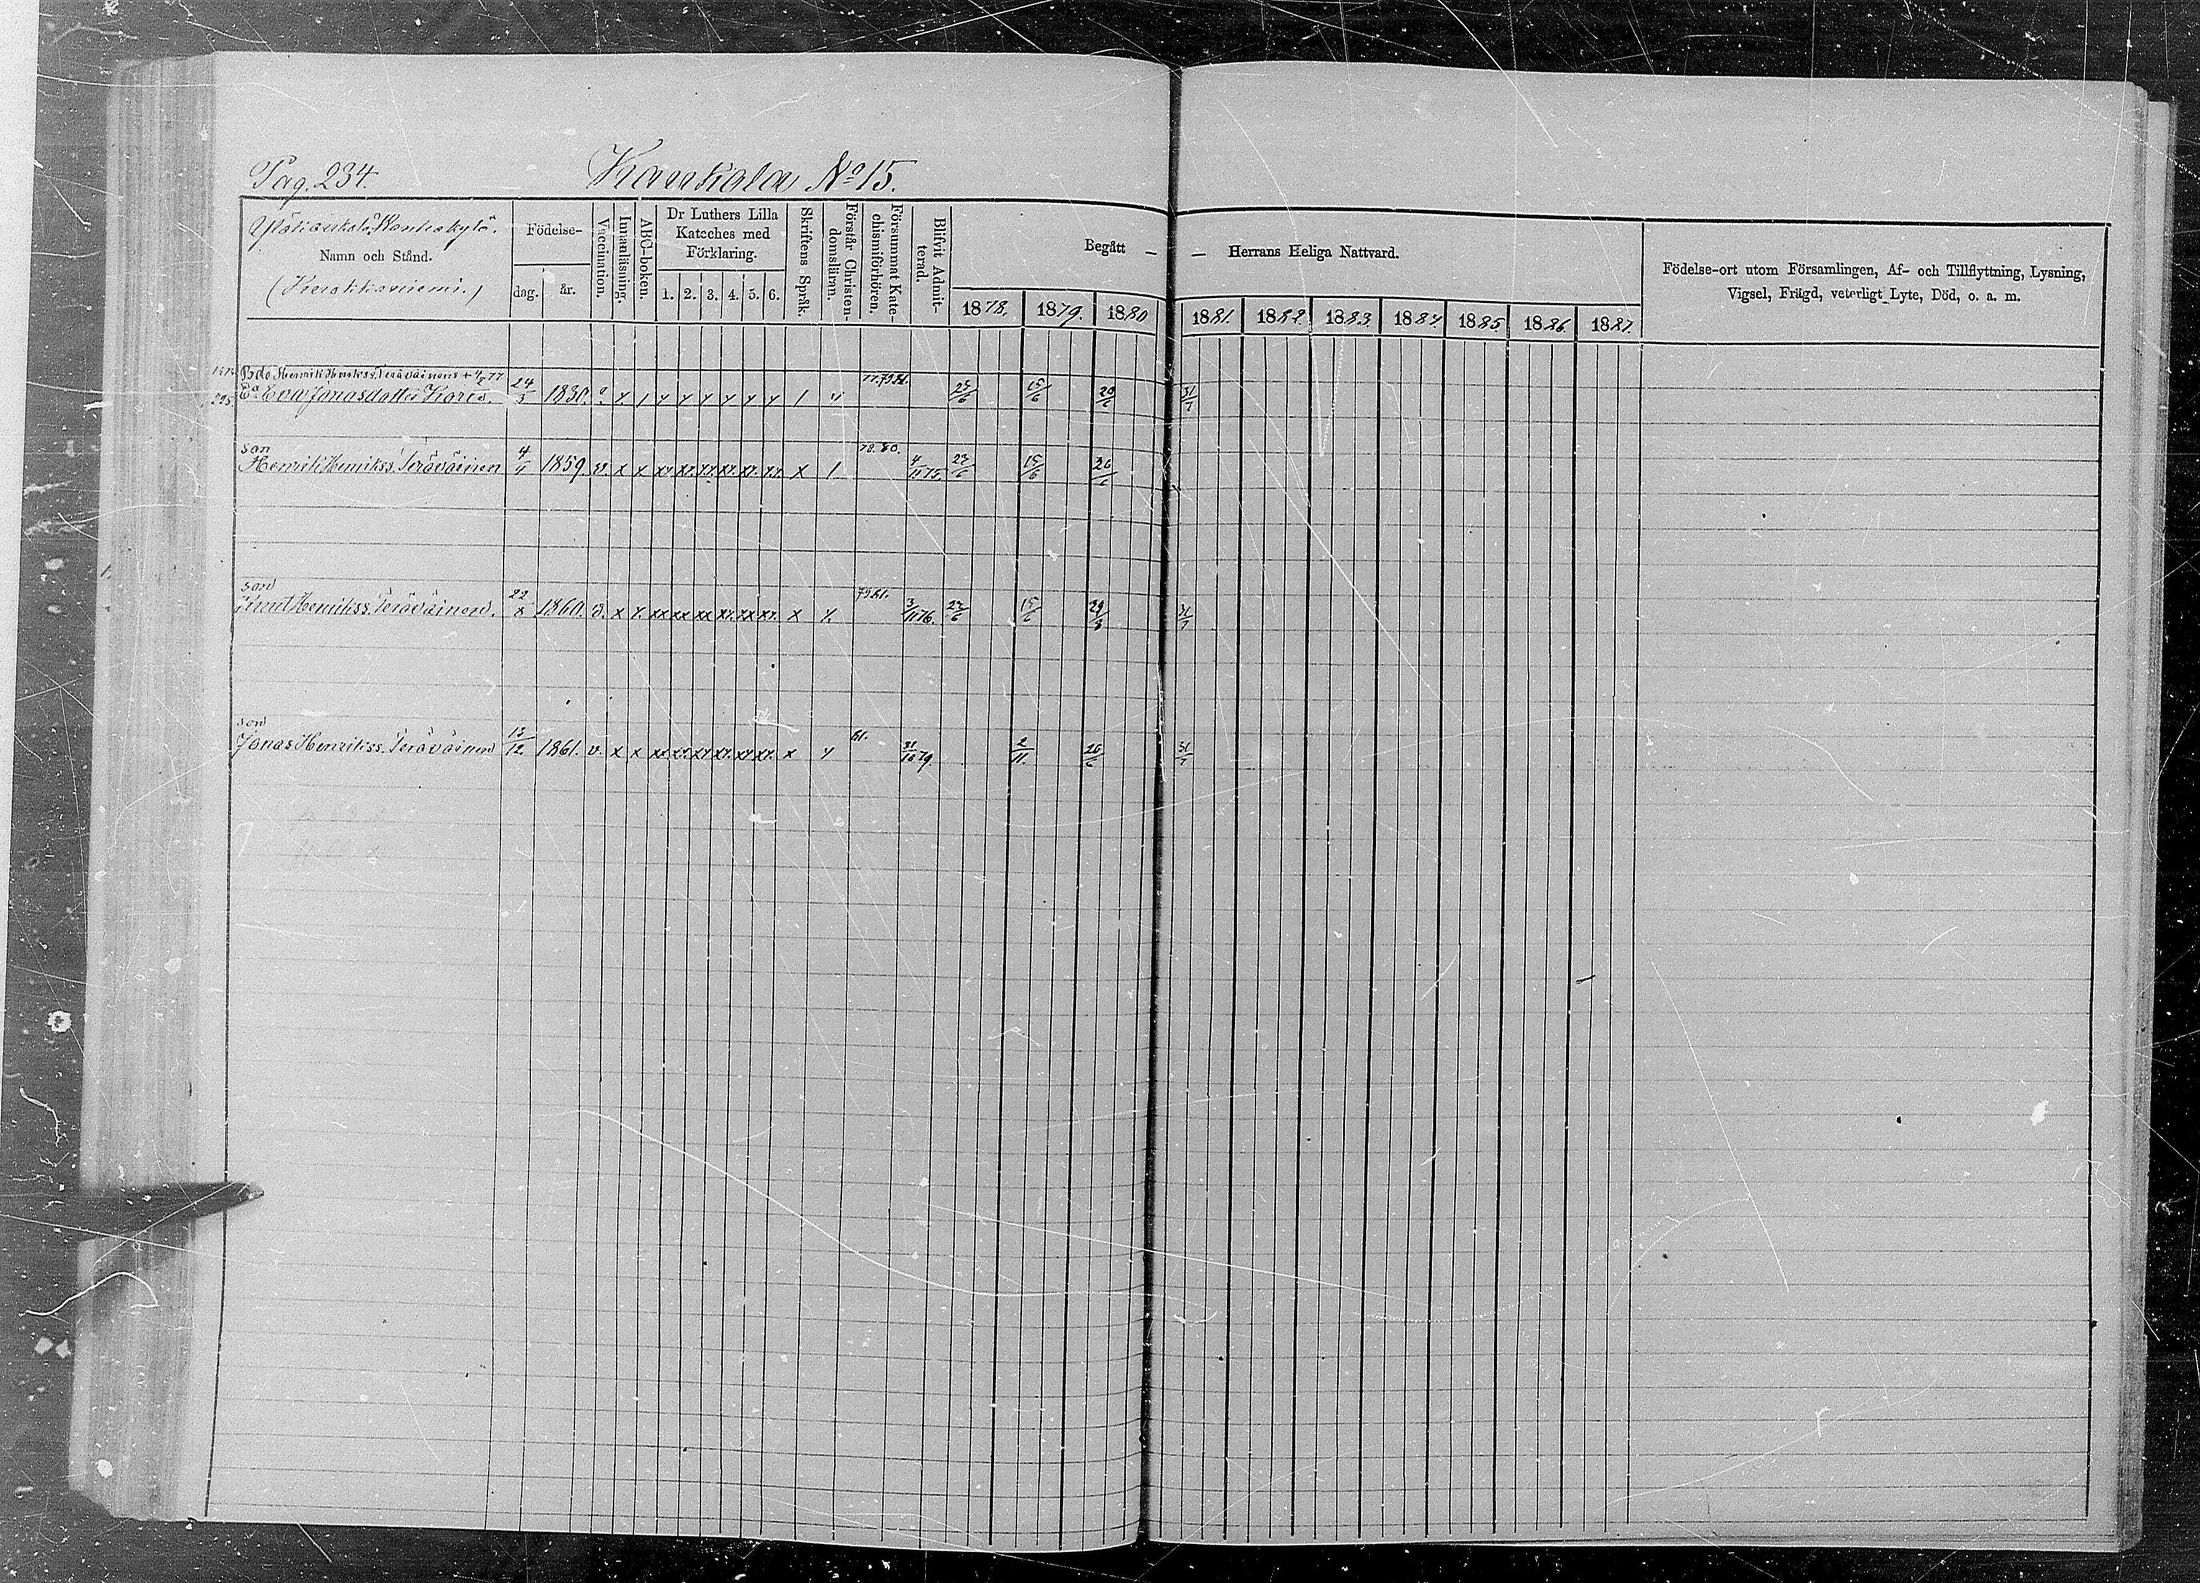 Pag. 234. Kaukola No 15.
Namn och Stånd.
Födelse-
dag. år.
Vaccination.
Innanläsning.
ABC-boken.
Dr Luthers Lilla
Kateches med
Förklaring.
1. 2. 3. 4. 5. 6.
Skriftens Språk.
Förstår Christen-
domsläran.
Försummat Kate-
chismförhören.
Blifvit Admit-
terad.
Begått — — Herrans Heliga Nattvard.
1878. 1879. 1880 1881. 1882. 1883. 1884 1885. 1886. 1887.
Födelse-ort utom Församlingen, Af- och Tillflyttning, Lysning,
Vigsel, Frägd, veterligt Lyte, Död, o. a. m.
Bdo. Henrik Henrikss. Teräväinens
Ea Eva Jonasdotter 24/5 1830. 77.79.81. 23/6 15/6 20/6 31/7
son
Henrik Henrikss. Teräväinen 4/1 1859. v. x x xx xx xx xx xx xx x 78.80. 4/11 75. 23/6 15/6 26/6
son
Henrikss. Teräväinen. 1860. v. x x xx xx xx xx xx xx x 79.81. 3/11 76. 23/6 15/6 31/7
son
Jonas Henrikss. Teräväinen 13/12 1861. v. x x xx xx xx xx xx xx x 81. 31/10 79. 2/11. 26/6 31/7